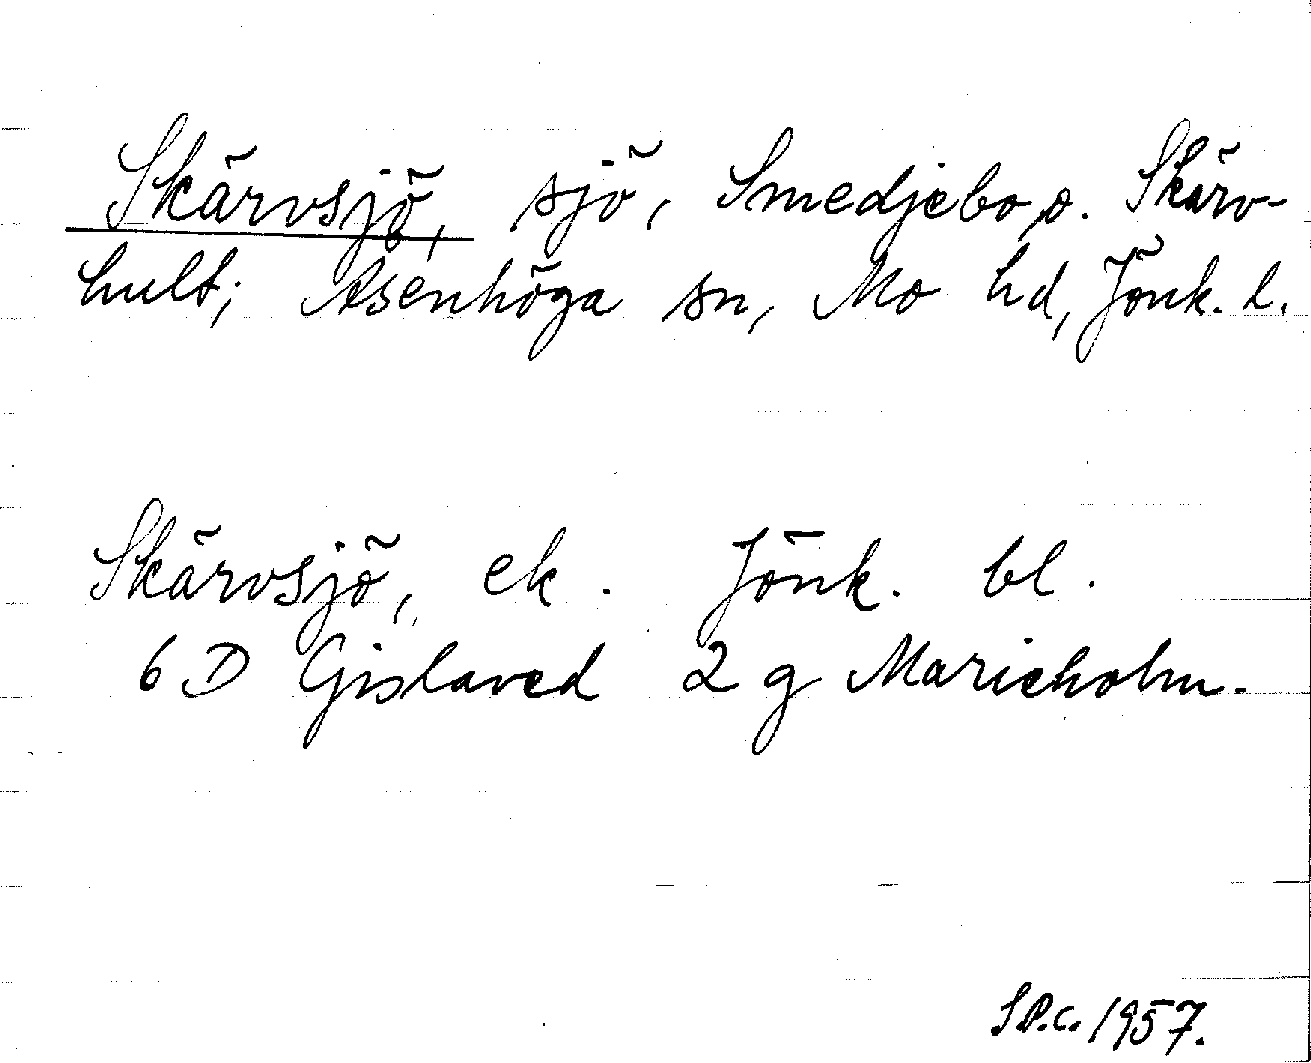 Skärvsjö, sjö, Smedjebo, o. Skärv-
hult; Åsenhöga sn, Mo hd, Jönk. l.
Skärvsjö, ek. Jönk. bl.
6 D Gislaved 2 g Marieholm.
S.P.C. 1957.